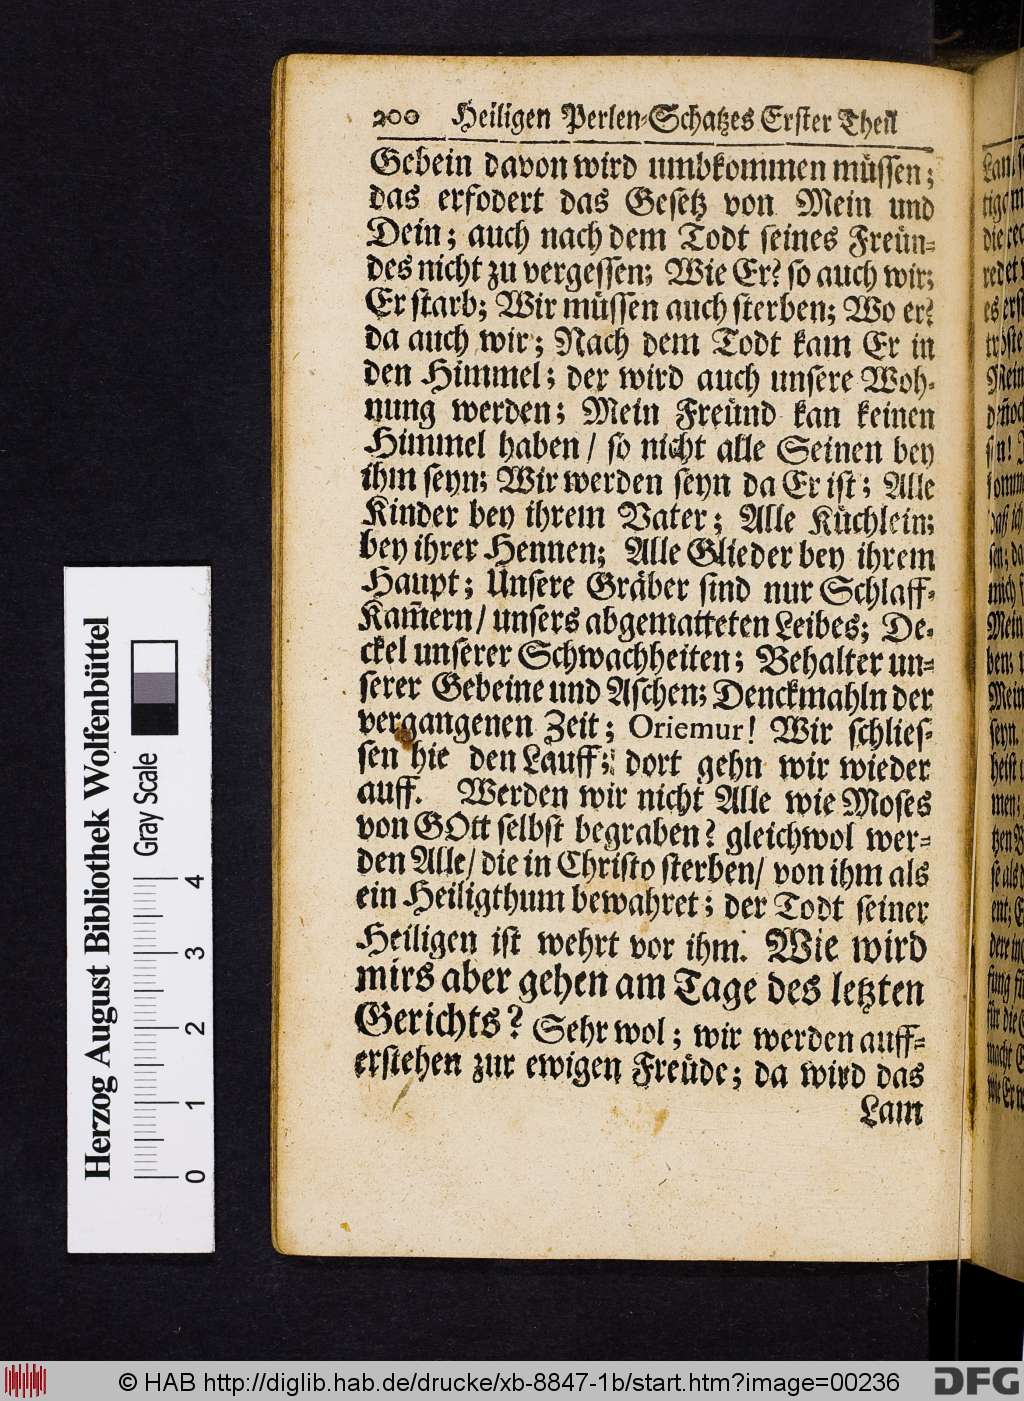 200 Heiligen Perlen-Schatzes Erster Theil
Gebein davon wird umbkommen müssen;
das erfodert das Gesetz von Mein und
Dein; auch nach dem Todt seines Freün-
des nicht zu vergessen; Wie Er? so auch wir;
Er starb; Wir müssen auch sterben; Wo er?
da auch wir; Nach dem Todt kam Er in
den Himmel; der wird auch unsere Woh-
nung werden; Mein Freünd kan keinen
Himmel haben / so nicht alle Seinen bey
ihm seyn; Wir werden seyn da Er ist; Alle
Kinder bey ihrem Vater; Alle Küchlein;
bey ihrer Hennen; Alle Glieder bey ihrem
Haupt; Unsere Gräber sind nur Schlaff-
Kam̃ern / unsers abgematteten Leibes; De-
ckel unserer Schwachheiten; Behalter un-
serer Gebeine und Aschen; Denckmahln der
vergangenen Zeit; Oriemur! Wir schlies-
sen hie den Lauff; dort gehn wir wieder
auff. Werden wir nicht Alle wie Moses
von GOtt selbst begraben? gleichwol wer-
den Alle / die in Christo sterben / von ihm als
ein Heiligthum bewahret; der Todt seiner
Heiligen ist wehrt vor ihm. Wie wird
mirs aber gehen am Tage des letzten
Gerichts? Sehr wol; wir werden auff-
erstehen zur ewigen Freüde; da wird das
Lam
Herzog August Bibliothek Wolfenbüttel
Gray Scale
0 1 2 3 4
© HAB http://diglib.hab.de/drucke/xb-8847-1b/start.htm?image=00236
DFG